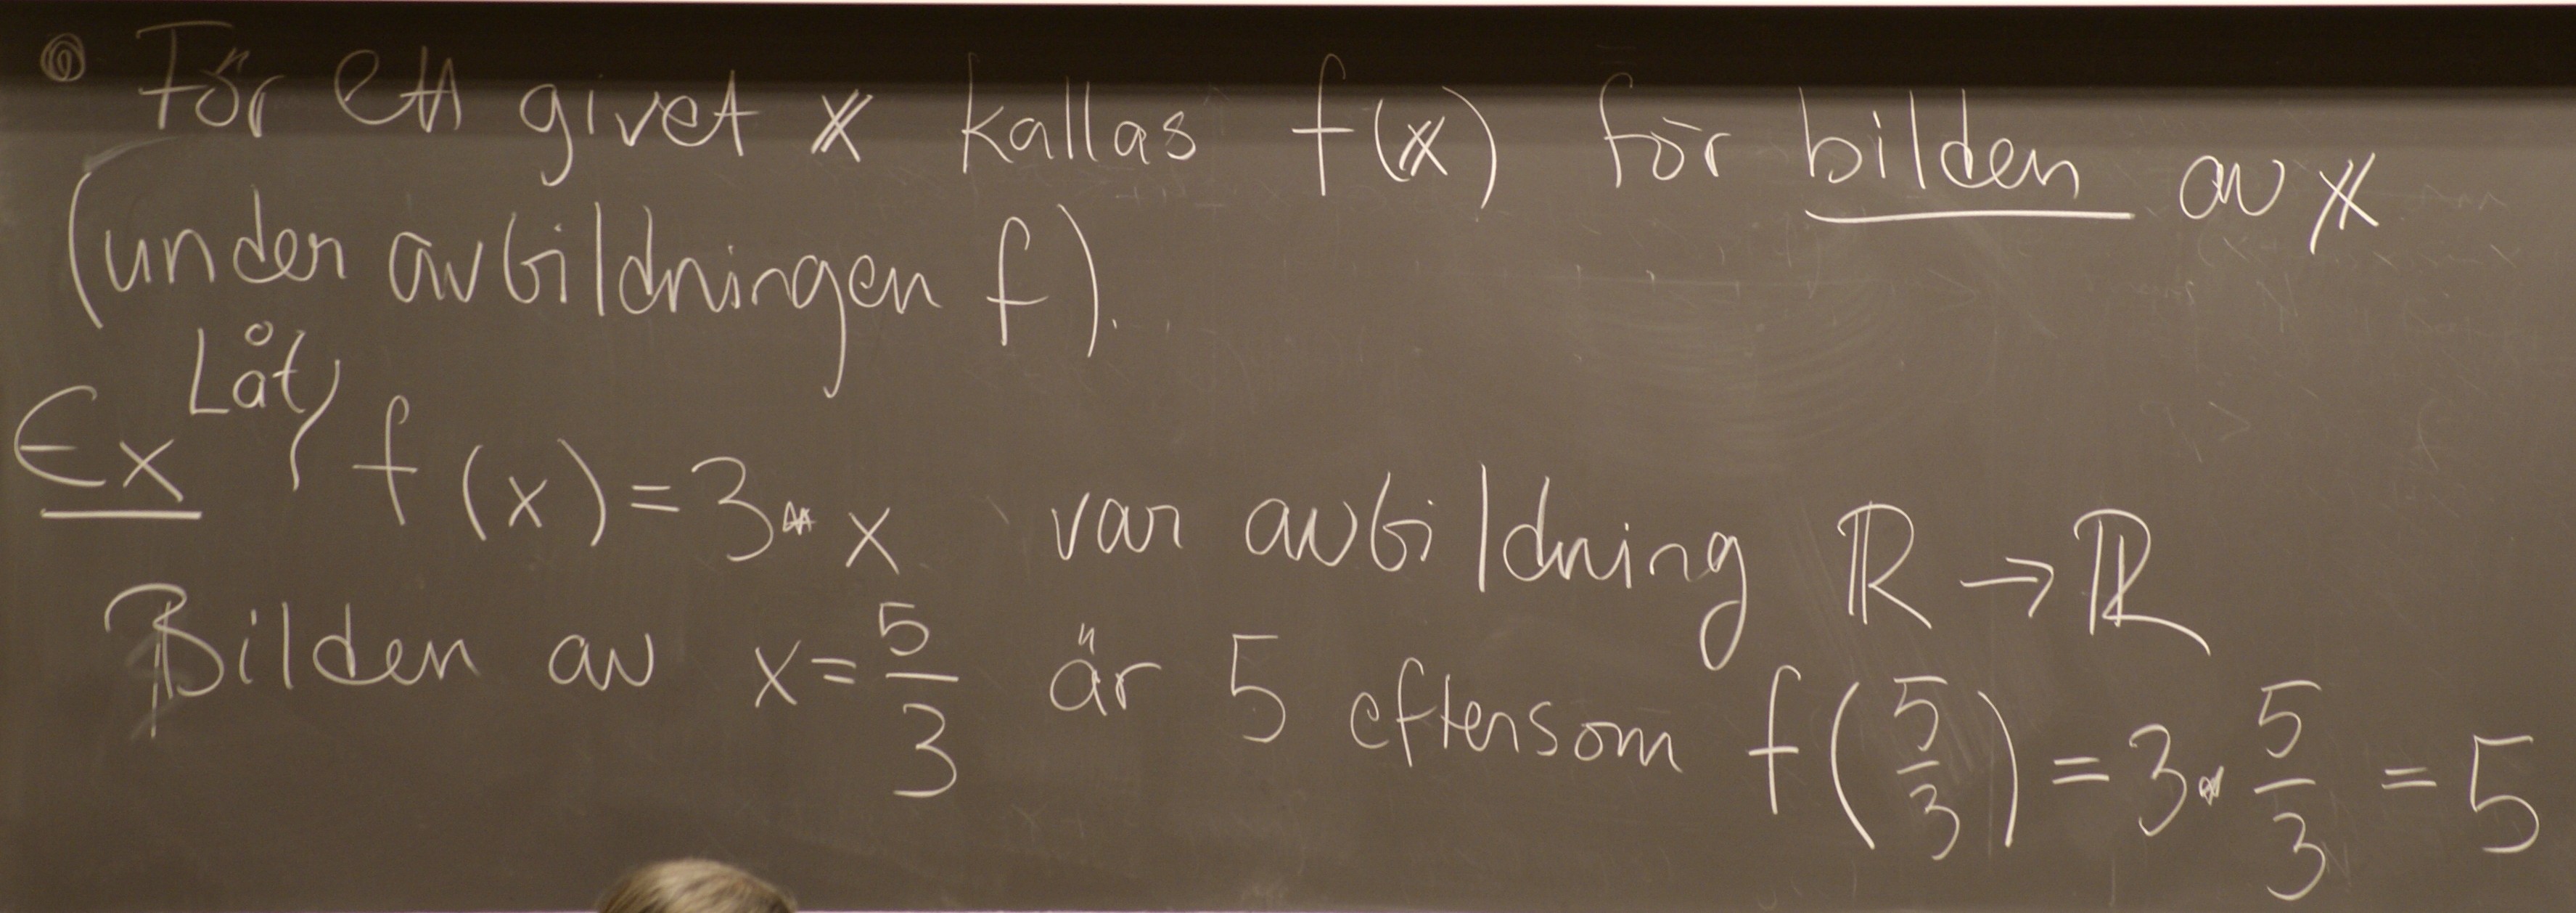 För ett givet 𝕩 kallas f(𝕩) för bilden av 𝕩
(under avbildningen f).
Ex Låt f(x) = 3 · x var avbildning ℝ → ℝ
Bilden av x = 5/3 är 5 eftersom f(5/3) = 3 · 5/3 = 5